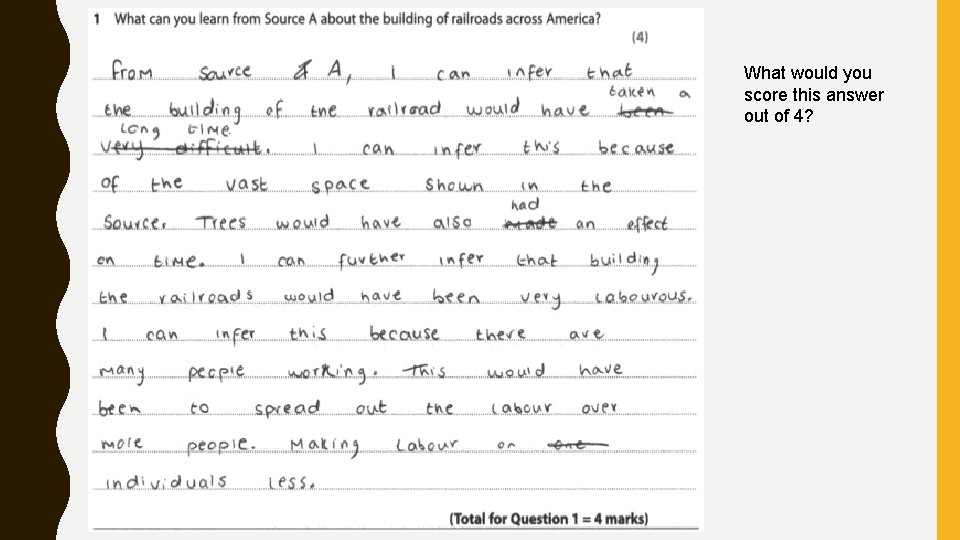 1 What can you learn from Source A about the building of railroads across America?
(4)
from source A, I can infer that
taken a
the building of the railroad would have been
long time
very difficult. I can infer this because
of the vast space shown in the
had
source. Trees would have also made an effect
on time. I can further infer that building
the railroads would have been very labourous.
I can infer this because there are
many people working. This would have
been to spread out the labour over
more people. Making labour on one
individuals less.
(Total for Question 1 = 4 marks)
What would you
score this answer
out of 4?